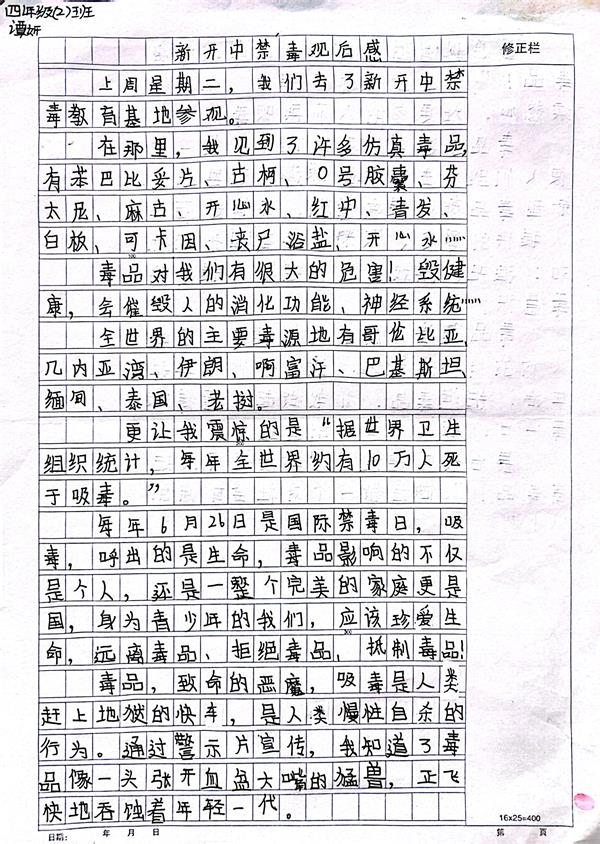 四年级(2)班
谭妍
新开中禁毒观后感
修正栏
上周星期二，我们去了新开中禁
毒教育基地参观。
在那里，我见到了许多仿真毒品，
有苯巴比妥片、古柯、0号胶囊、芬
太尼、麻古、开心水、红中、青发、
白板、可卡因、丧尸浴盐、开心水……
毒品对我们有很大的危害！毁健
康，会催毁人的消化功能、神经系统……
全世界的主要毒源地有哥伦比亚、
几内亚湾、伊朗、啊富汗、巴基斯坦、
缅甸、泰国、老挝。
更让我震惊的是“据世界卫生
组织统计，每年全世界约有10万人死
于吸毒。”
每年6月26日是国际禁毒日，吸
毒，呼出的是生命，毒品影响的不仅
是个人，还是一整个完美的家庭更是
国，身为青少年的我们，应该珍爱生
命，远离毒品、拒绝毒品、抵制毒品！
毒品，致命的恶魔，吸毒是人类
赶上地狱的快车，是人类慢性自杀的
行为。通过警示片宣传，我知道了毒
品像一头张开血盆大嘴的猛兽，正飞
快地吞蚀着年轻一代。
16x25=400
日期： 年 月 日 第 页